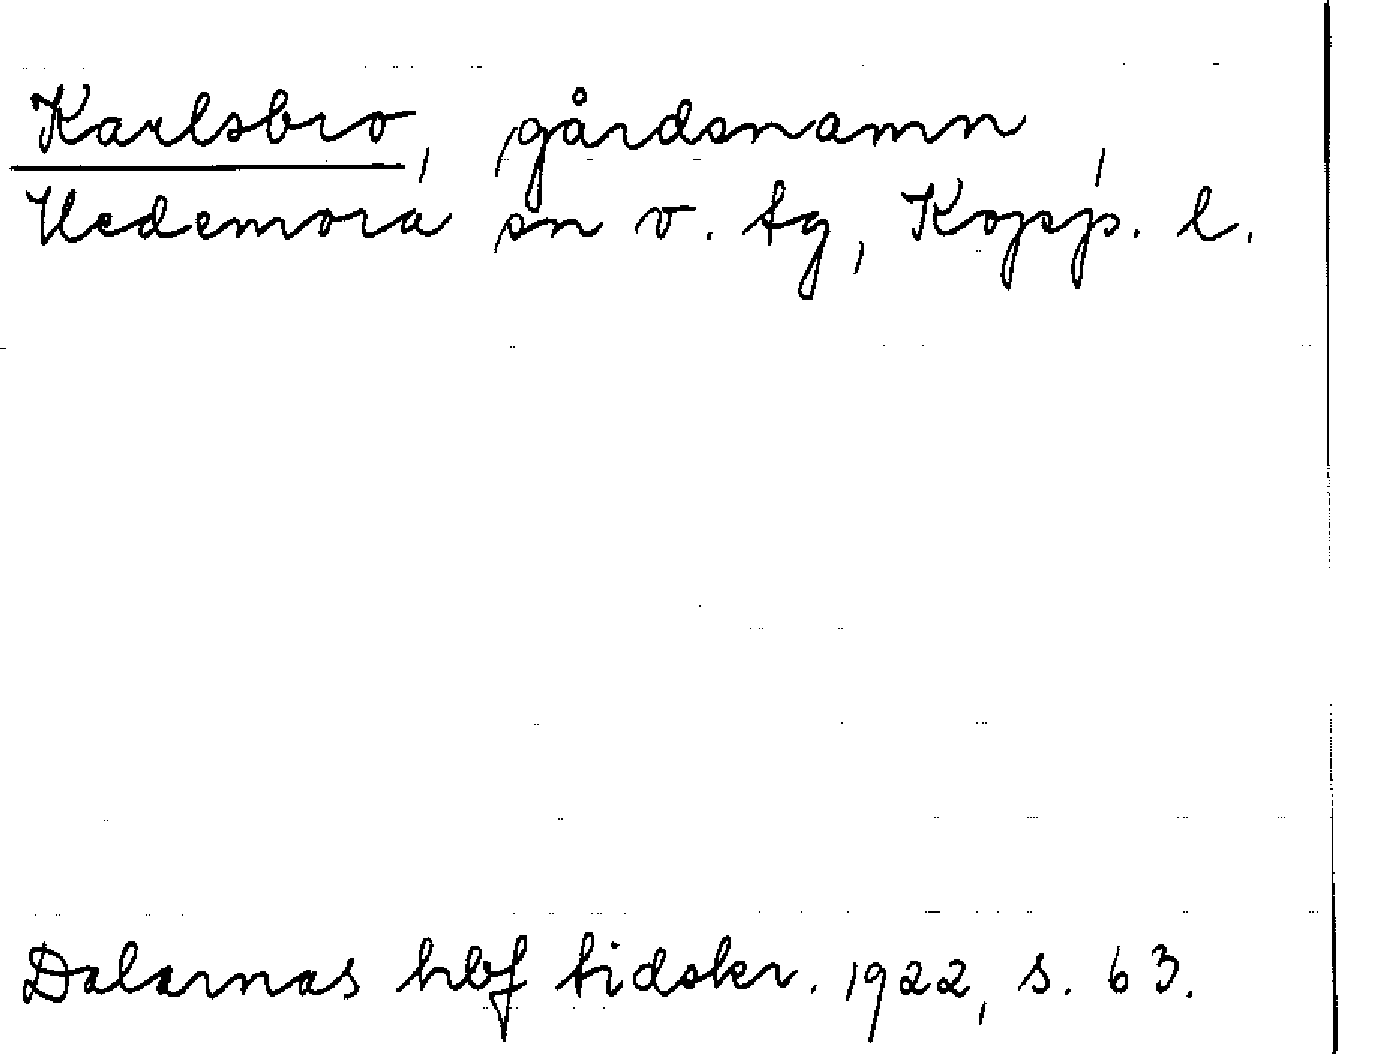 Karlsbro, gårdsnamn,
Hedemora sn v. tg, Kopp. l.
Dalarnas hbf tidskr. 1922, s. 63.